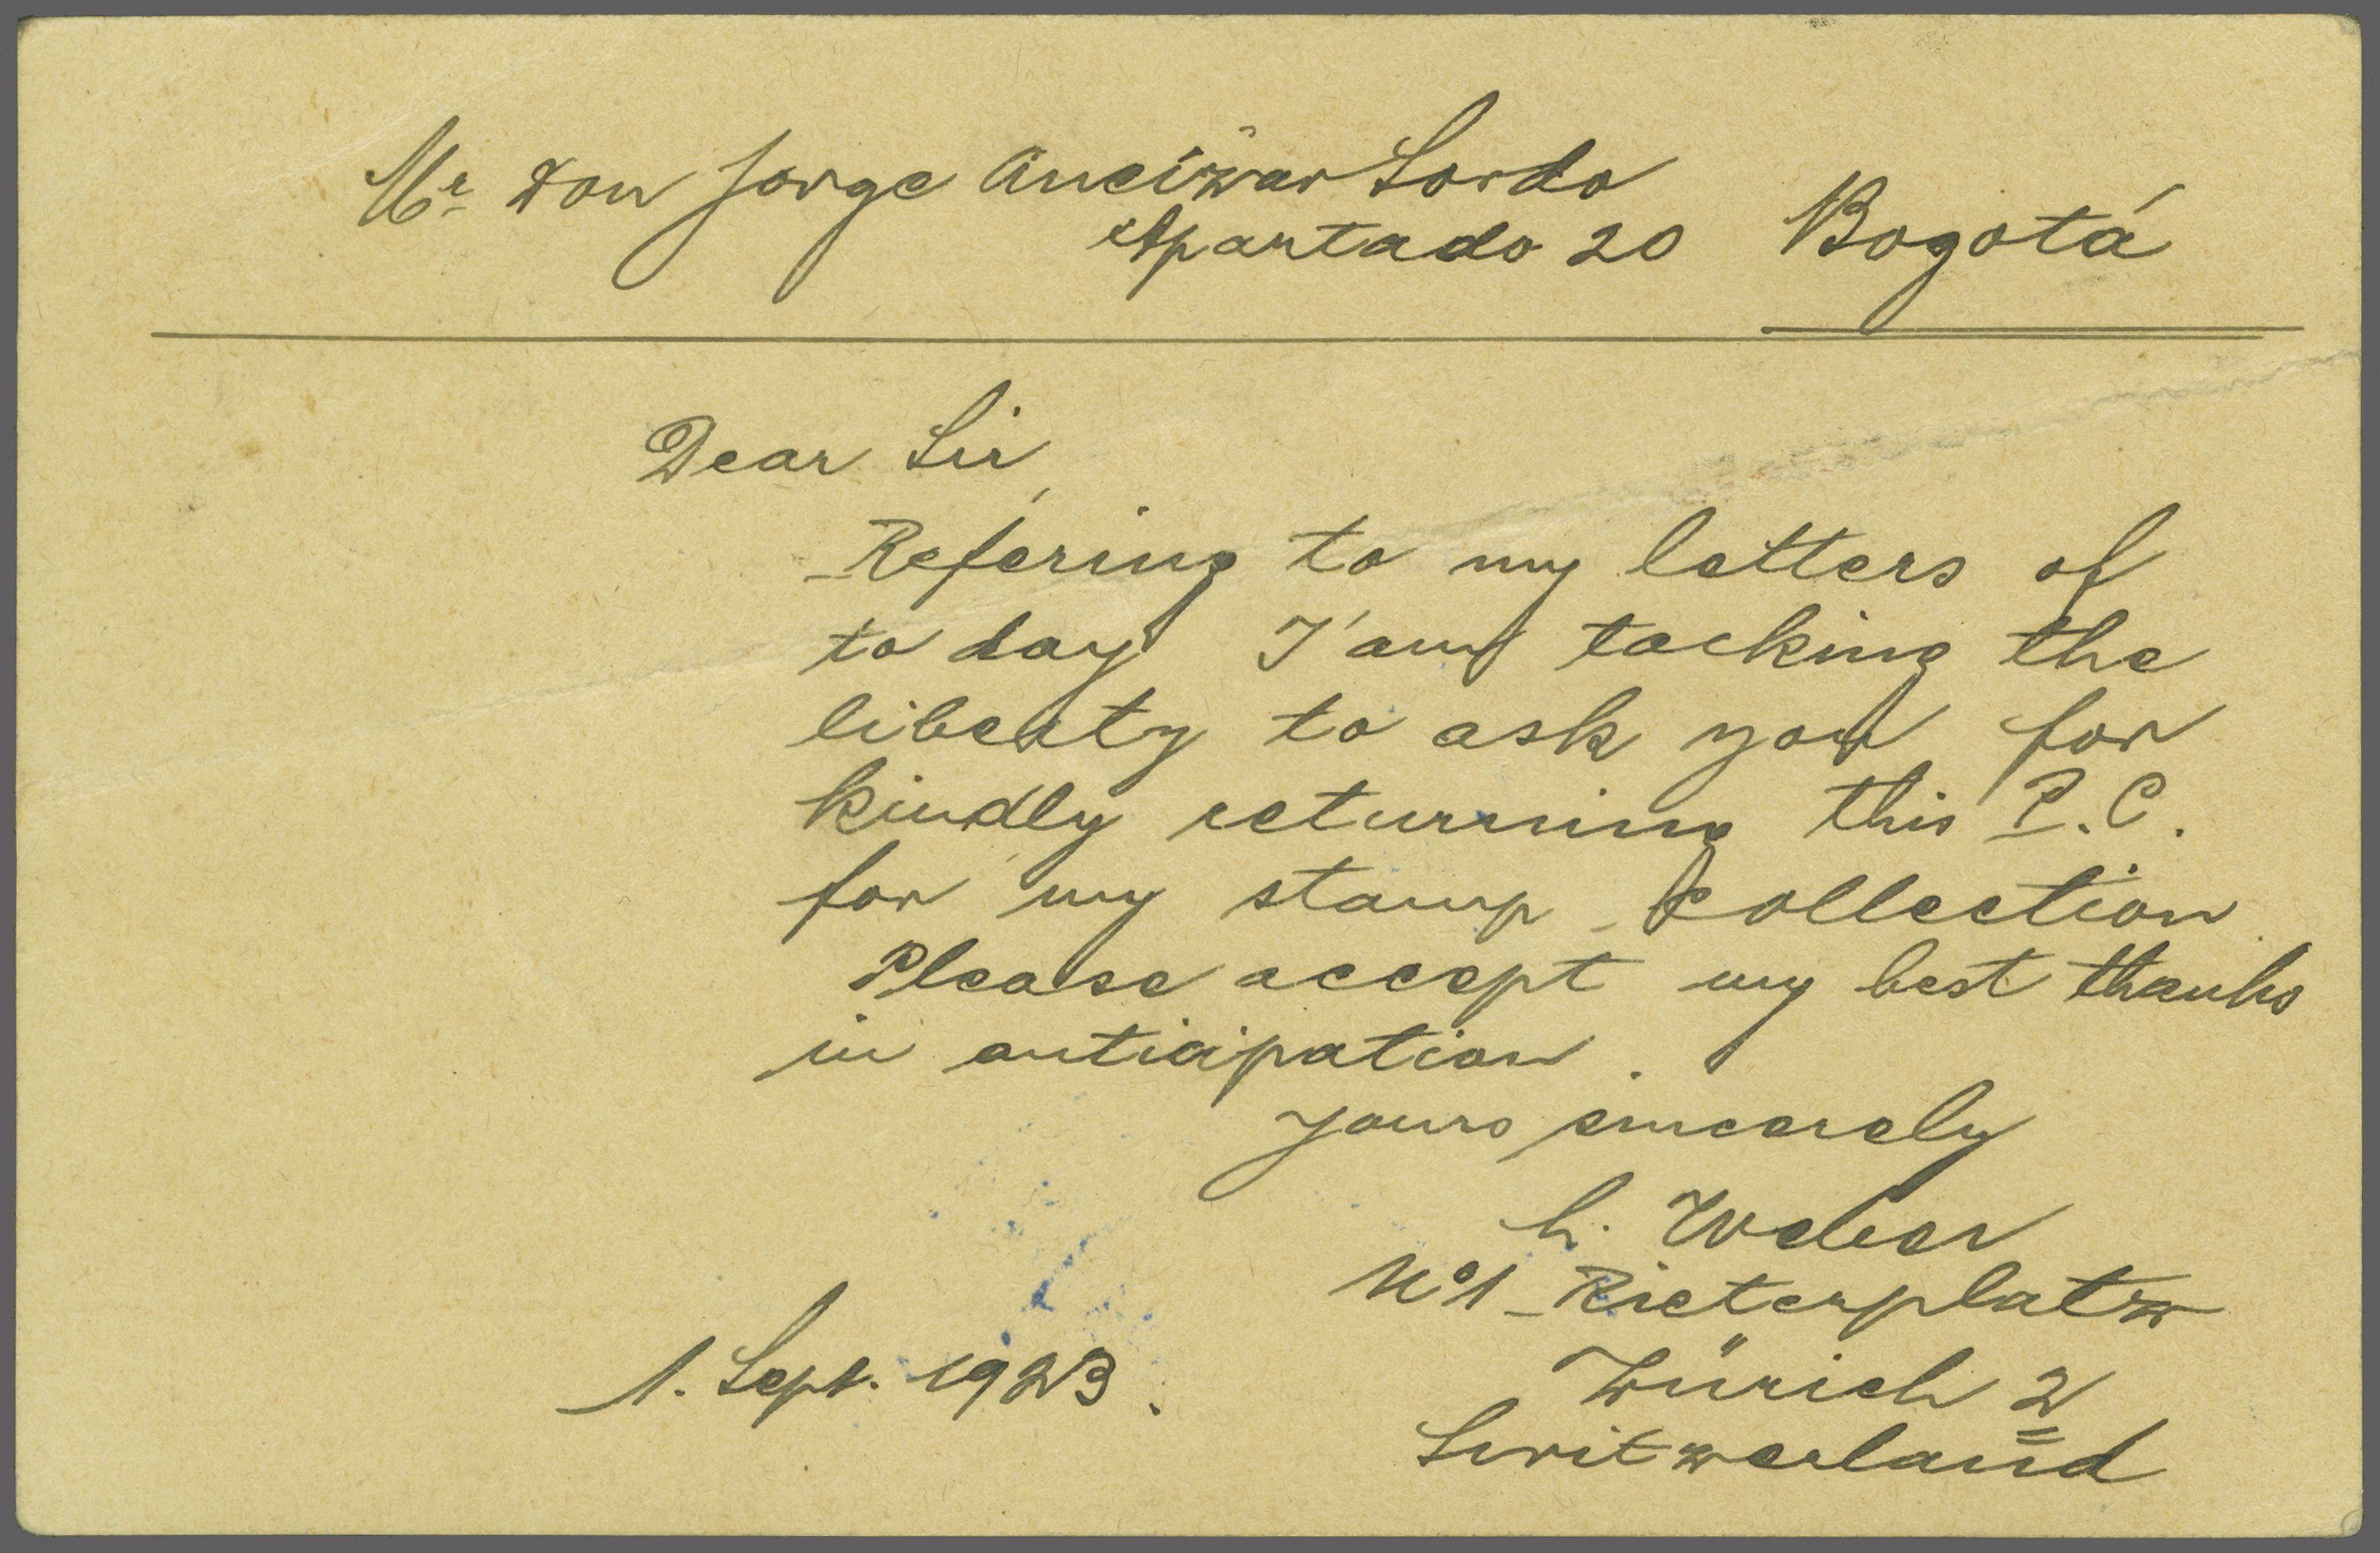 Mr Don Jorge Ancizar Sordo
Apartado 20 Bogotá
Dear Sir,
Refering to my letters of
to day I'am tacking the
liberty to ask you for
kindly returning this P.C.
for my stamp-collection.
Please accept my best thanks
in anticipation.
Yours sincerely
h. Weber
No 1 Rieterplatz
Zürich 2
Switzerland
1. Sept. 1923.